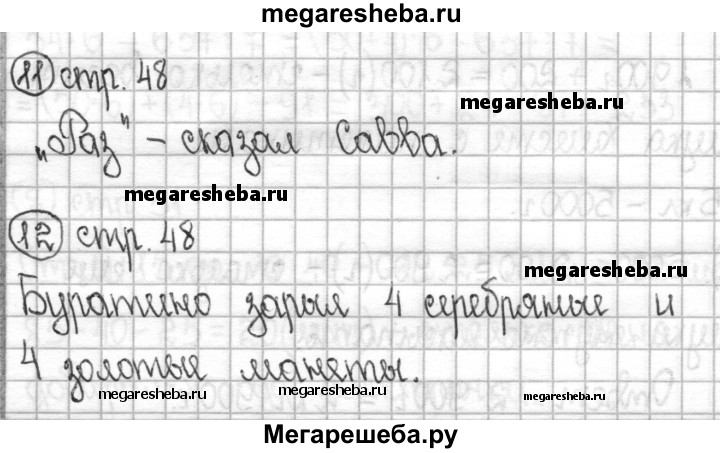 megaresheba.ru
11 стр. 48
megaresheba.ru
„Раз" – сказал Савва.
megaresheba.ru
12 стр. 48
megaresheba.ru
Буратино зарыл 4 серебряные и
4 золотые манеты.
megaresheba.ru
megaresheba.ru
megaresheba.ru
Мегарешеба.ру